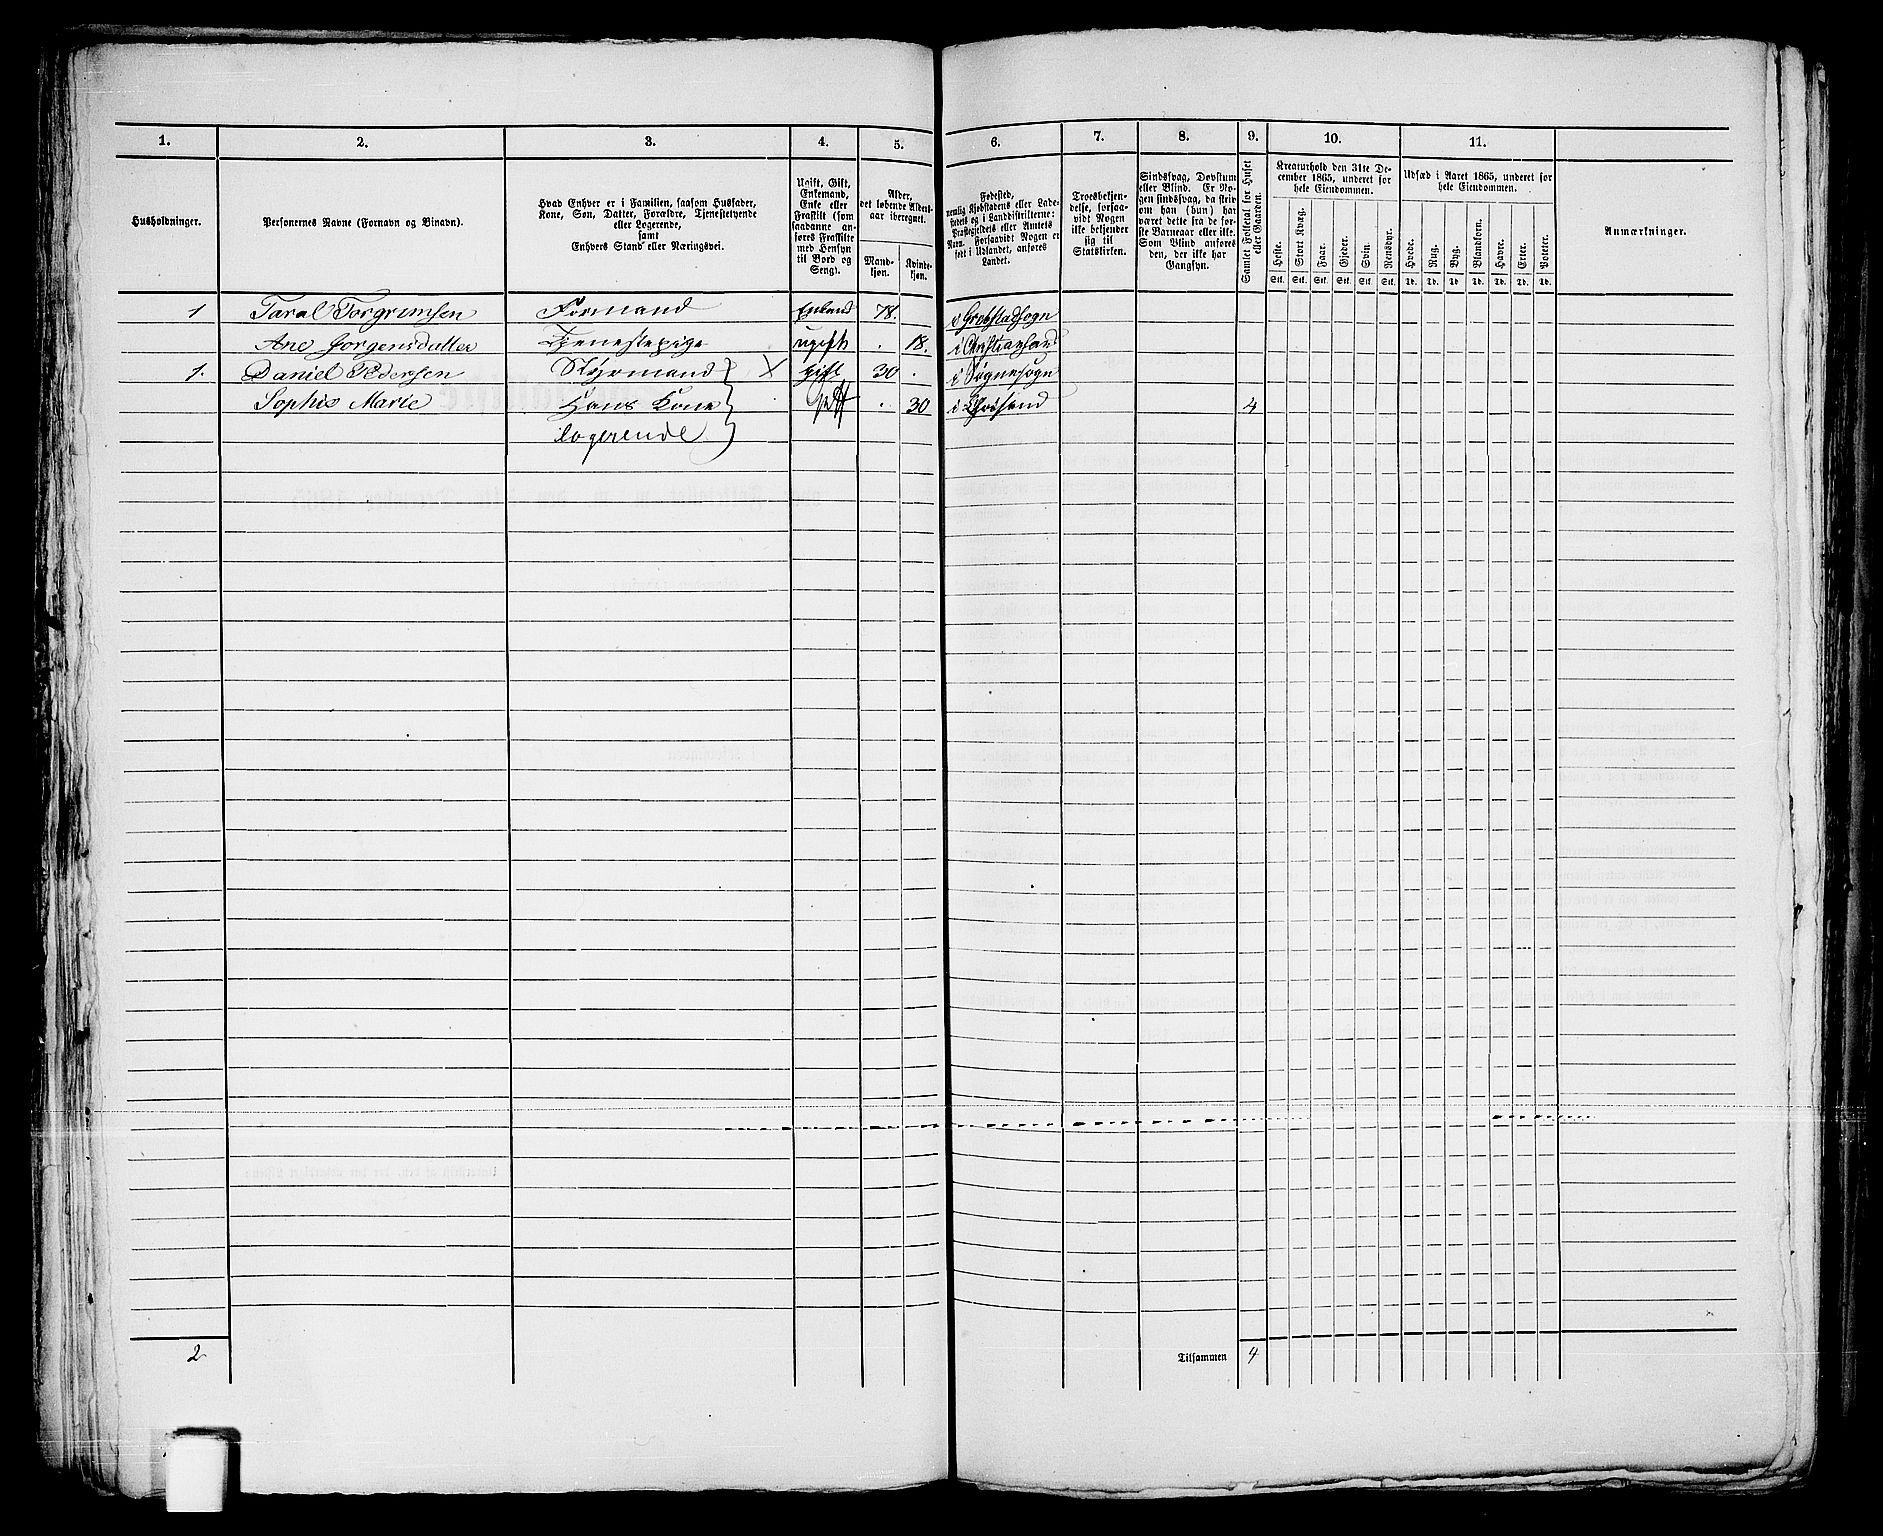 1. 2. 3. 4. 5. 6. 7. 8. 9. 10. 11.
Husholdninger.
Personernes Navne (Fornavn og Binavn).
Hvad Enhver er i Familien, saasom Husfader,
Kone, Søn, Datter, Forældre, Tjenestetyende
eller Logerende,
samt
Enhvers Stand eller Næringsvei.
Ugift, Gift,
Enkemand,
Enke eller
Fraskilt (som
saadanne an-
føres Fraskilte
med Hensyn
til Bord og
Seng).
Alder,
det løbende Alders-
aar iberegnet.
Mand-
kjøn.
Kvinde-
kjøn.
Fødested,
nemlig Kjøbstadens eller Lade-
stedets og i Landdistrikterne:
Præstegjeldets eller Amtets
Navn. Forsaavidt Nogen er
født i Udlandet, anføres
Landet.
Troesbekjen-
delse, forsaa-
vidt Nogen
ikke bekjender
sig til
Statskirken.
Sindssvag, Døvstum
eller Blind. Er No-
gen sindssvag, da skriv
om han (hun) har
været dette fra de før-
ste Barneaar eller ikke.
Som Blind anføres
den, der ikke har
Gangsyn.
Samlet Folketal for Huset
eller Gaarden.
Kreaturhold den 31te De-
cember 1865, underet for
hele Eiendommen.
Heste. Stort Kvæg. Faar. Gjeder. Svin. Rensdyr.
Stk. Stk. Stk. Stk. Stk. Stk.
Udsæd i Aaret 1865, underet for
hele Eiendommen.
Hvede. Rug. Byg. Blandkorn. Havre. Erter. Poteter.
Td. Td. Td. Td. Td. Td. Td.
Anmærkninger.
1 Taral Torgrimsen Formand Enkemd 78. i Grebstadsogn
Ane Jørgensdatter Tjenestepige ugift . 18. i Christiansand
1. Daniel Pedersen Styrmand X gift 30 . i Søgnesogn
Sophie Marie Hans Kone gift . 30 i Chrisand 4
Logerende
2 Tilsammen 4